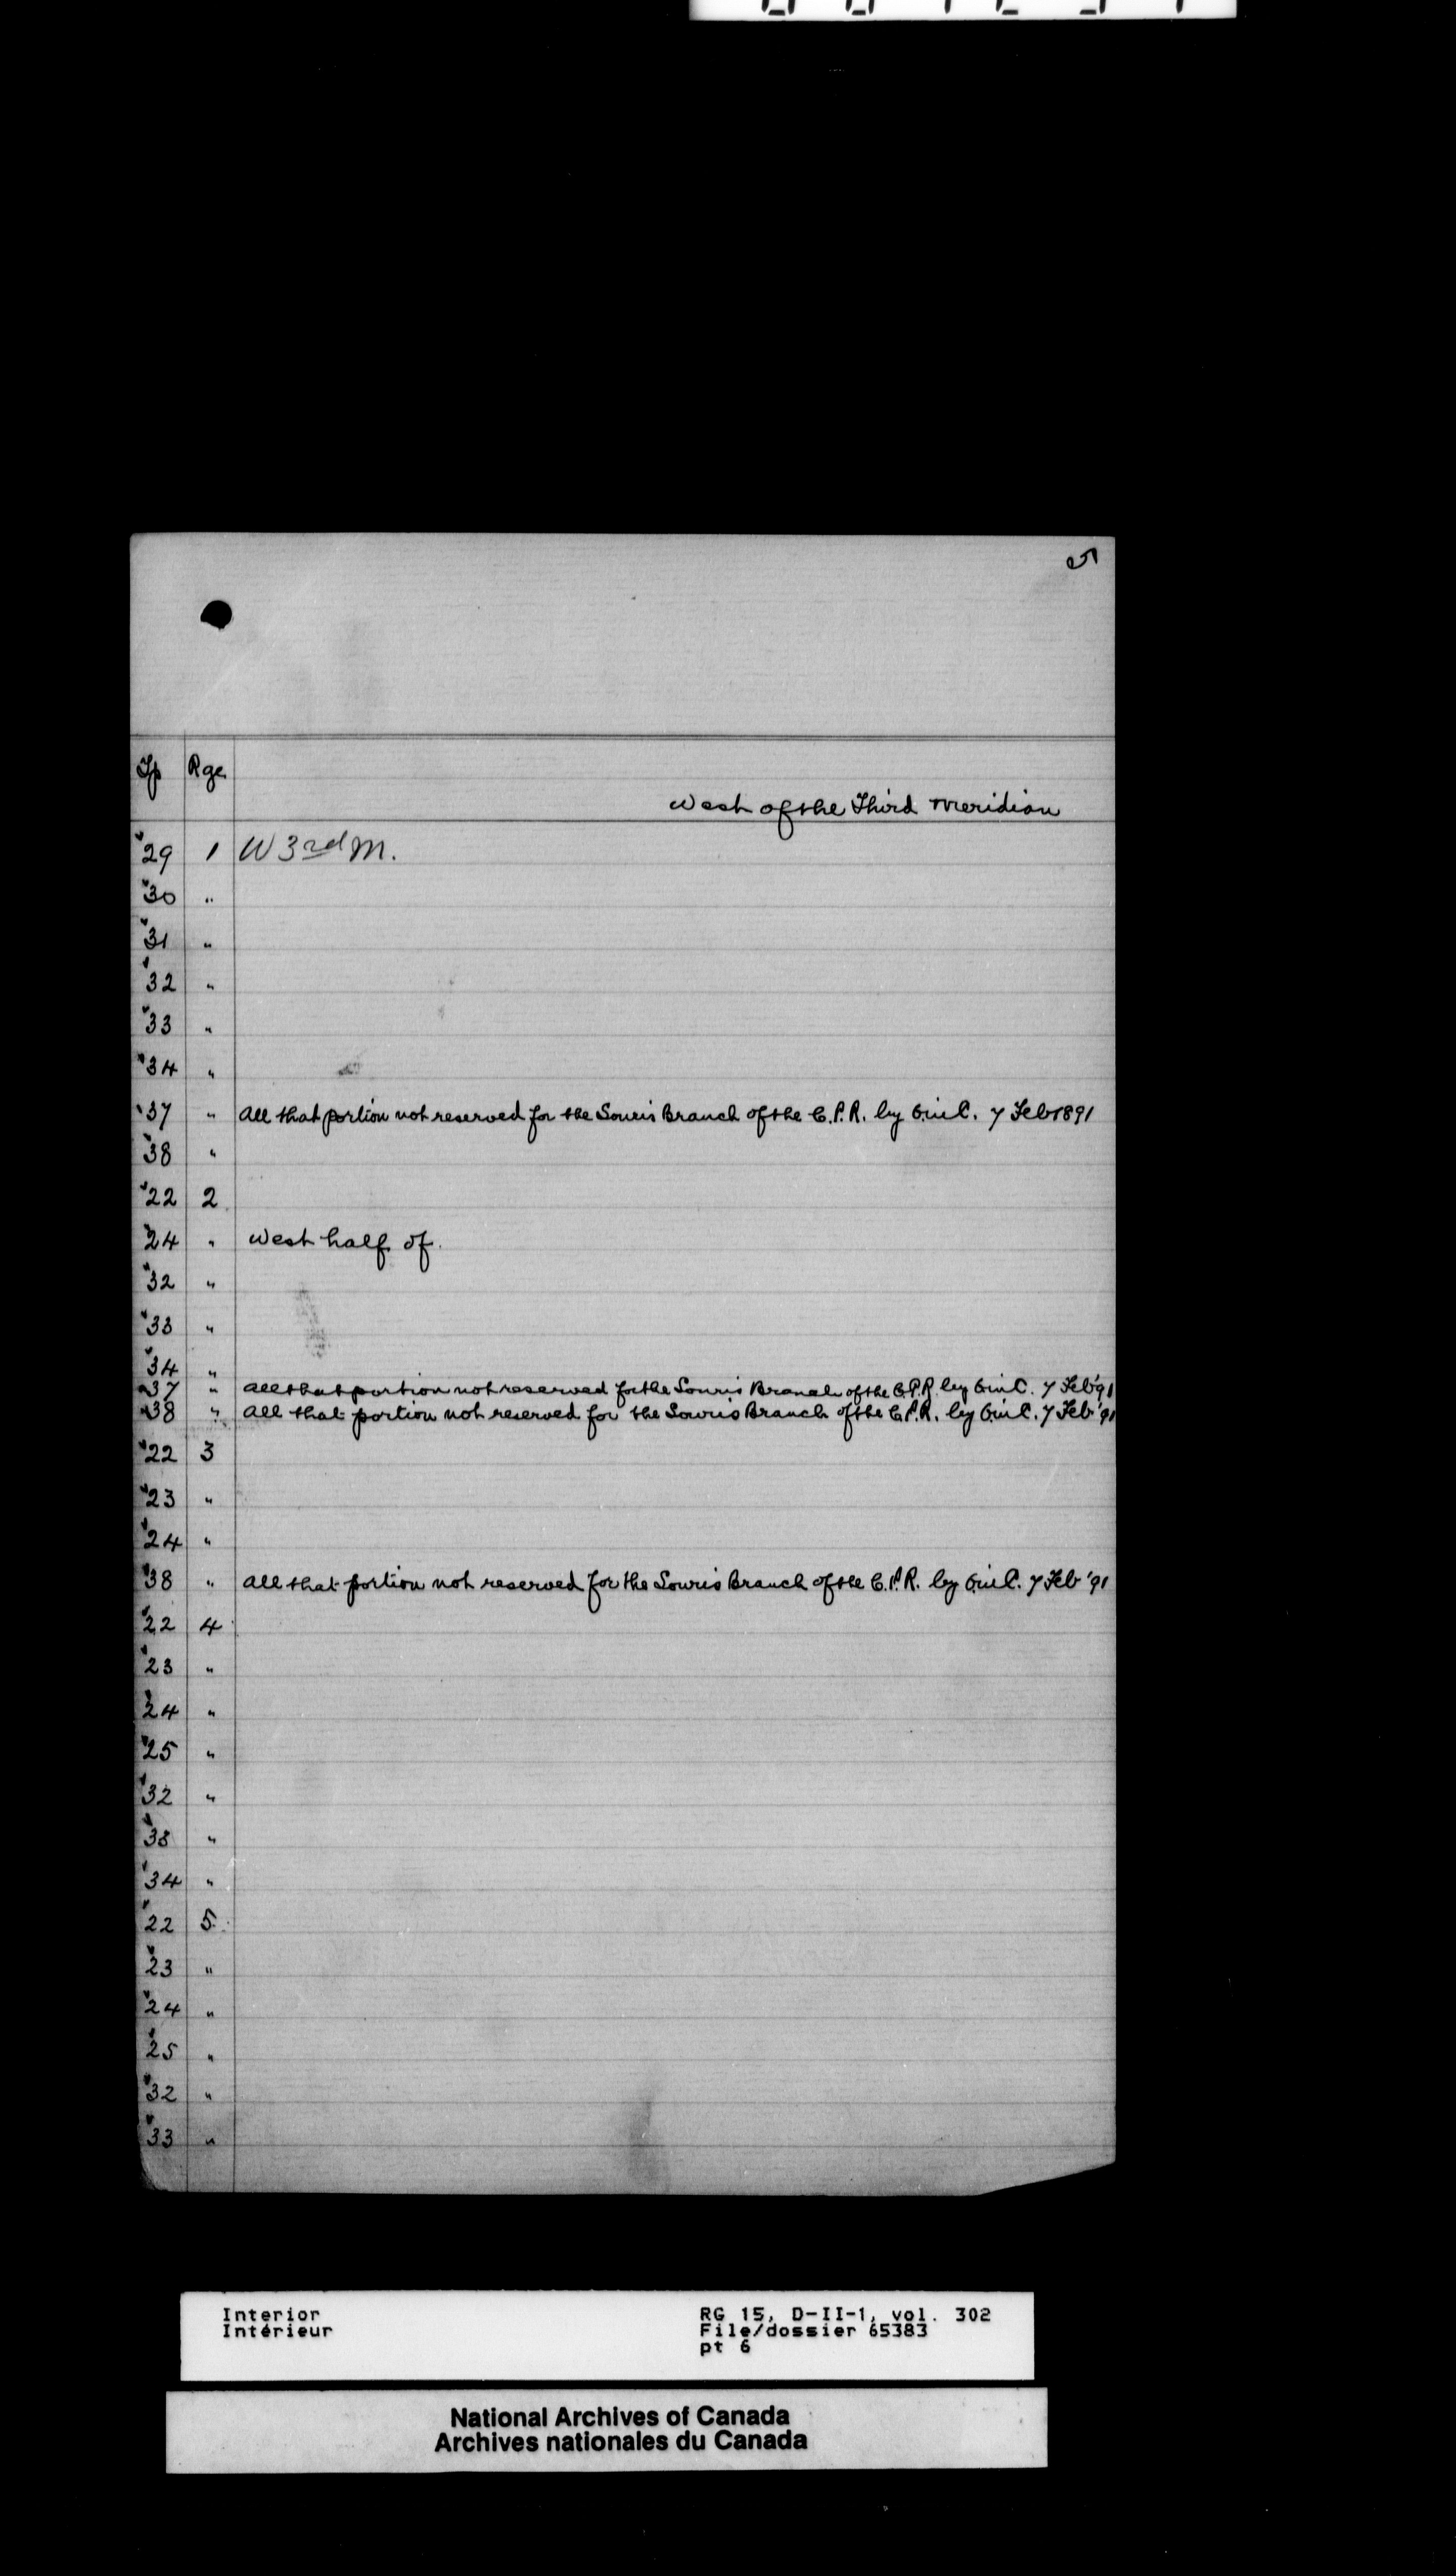 5
Tp Rge
West of the Third Meridian
29 1 W 3rd M.
30 "
31 "
32 "
33 "
34 "
37 " All that portion not reserved for the Souris Branch of the C.P.R. by O in C. 7 Feb 1891
38 "
22 2
24 " West half of.
32 "
33 "
34 "
37 " All that portion not reserved for the Souris Branch of the C.P.R. by O in C. 7 Feb '91
38 " All that portion not reserved for the Souris Branch of the C.P.R. by O in C. 7 Feb '91
22 3
23 "
24 "
38 " All that portion not reserved for the Souris Branch of the C.P.R. by O in C. 7 Feb '91
22 4
23 "
24 "
25 "
32 "
33 "
34 "
22 5
23 "
24 "
25 "
32 "
33 "
Interior RG 15, D-II-1, vol. 302
Intérieur File/dossier 65383
pt 6
National Archives of Canada
Archives nationales du Canada